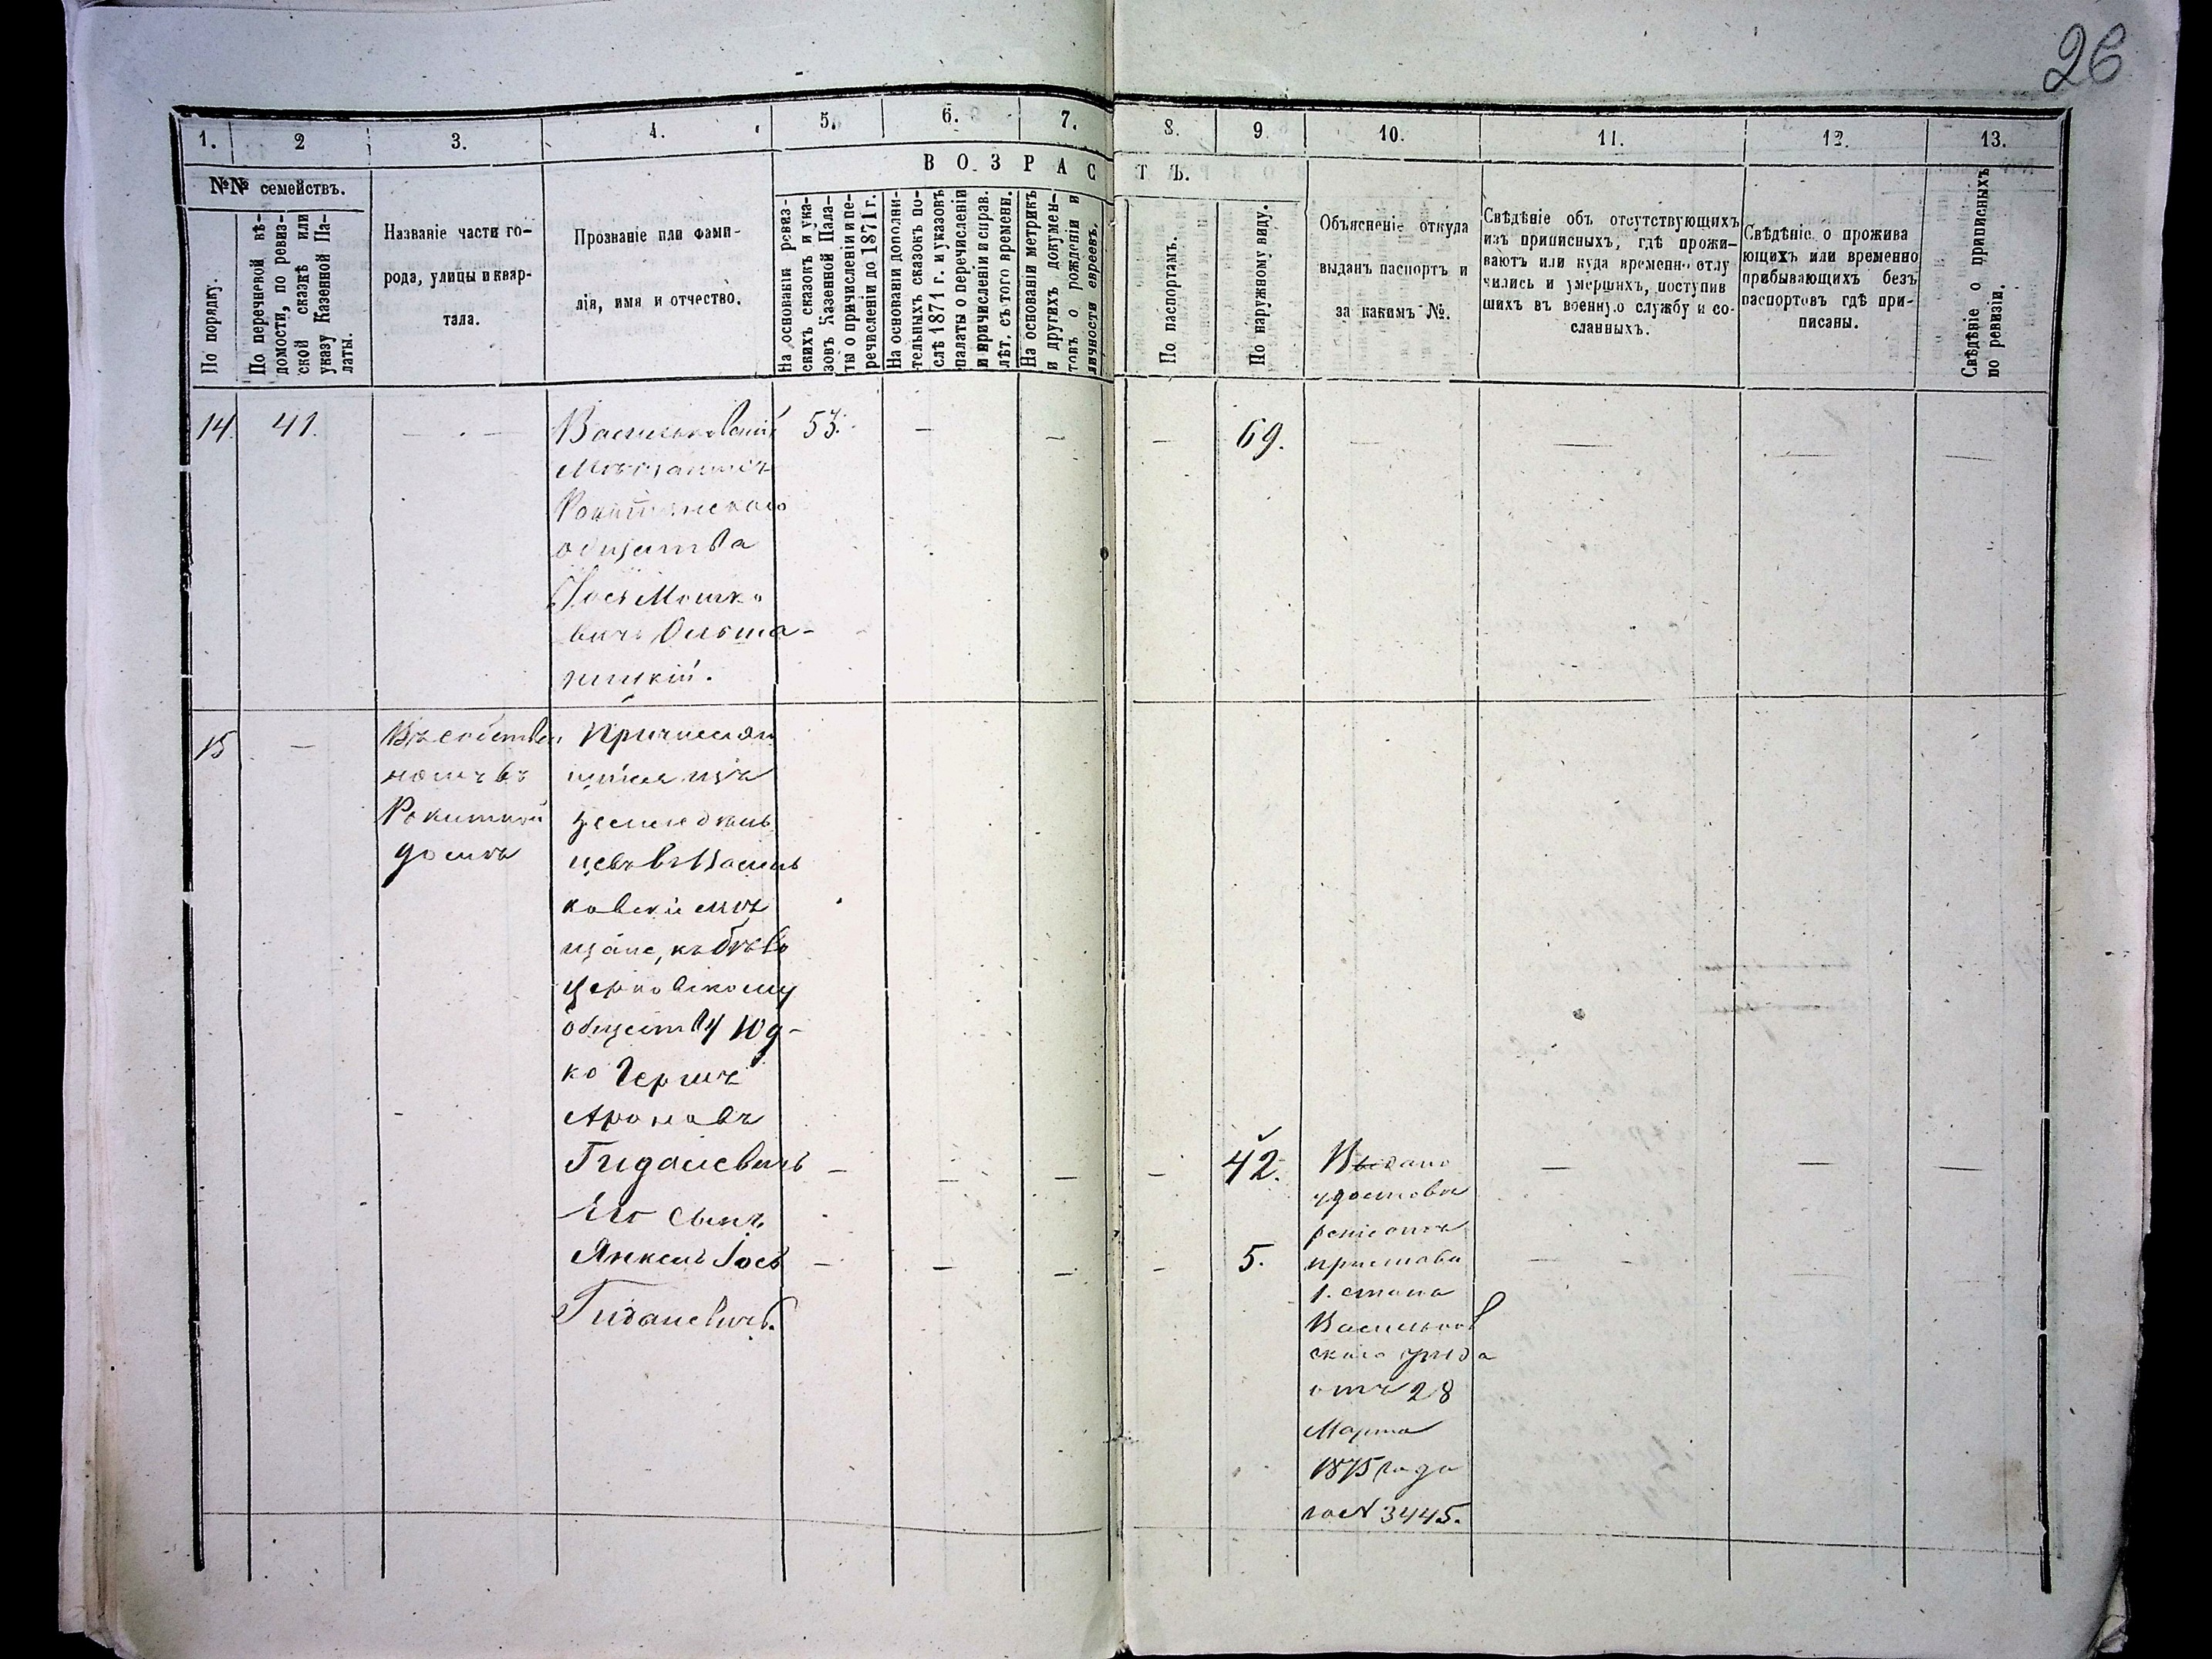 26
1. 2 3. 4. 5. 6. 7. 8. 9. 10. 11. 12. 13.
№№ семействъ.
В О З Р А С Т Ъ.
По порядку.
По перечневой вѣ-
домости, по ревиз-
ской сказкѣ или
указу Казенной Па-
латы.
Названіе части го-
рода, улицы и квар-
тала.
Прозваніе или фами-
лія, имя и отчество.
На основаніи ревиз-
скихъ сказокъ и ука-
зовъ Казенной Пала-
ты о причисленіи и пе-
речисленіи до 1871 г.
На основаніи дополни-
тельныхъ сказокъ по-
слѣ 1871 г. и указовъ
палаты о перечисленіи
и причисленіи и справ.
лѣт. съ того времени.
На основаніи метрикъ
и другихъ докумен-
товъ о рожденіи и
личности евреевъ.
По паспортамъ.
По наружному виду.
Объясненіе откуда
выданъ паспортъ и
за какимъ №.
Свѣдѣніе объ отсутствующихъ
изъ приписныхъ, гдѣ прожи-
ваютъ или куда временно отлу
чились и умершихъ, поступив
шихъ въ военную службу и со-
сланныхъ.
Свѣдѣніе о прожива
ющихъ или временно
прибывающихъ безъ
паспортовъ гдѣ при-
писаны.
Свѣдѣніе о приписныхъ
по ревизіи.
14. 41. — . — Васильковскій 53. — — — 69. — — — —
Мѣщанинъ
Рокитянскаго
общества
Іось Мошко
вичъ Ольша-
ницкій.
15 —
Въ собствен
номъ въ
Рокитной
домѣ
Причислен
щійся изъ
земледѣль
цевъ въ Василь
ковскіе мѣ
щане, къ бѣло
церковскому
обществу Юд-
ко Гершъ
Ароновъ
Гидалевичъ — — — — 42. — — —
Его Сынъ
Янкель Іось — — — — 5. — —
Гидалевичъ.
Выдано
удостовѣ
реніе отъ
пристава
1. стана
Васильков
скаго уѣзда
отъ 28
Марта
1875 года
за № 3445.